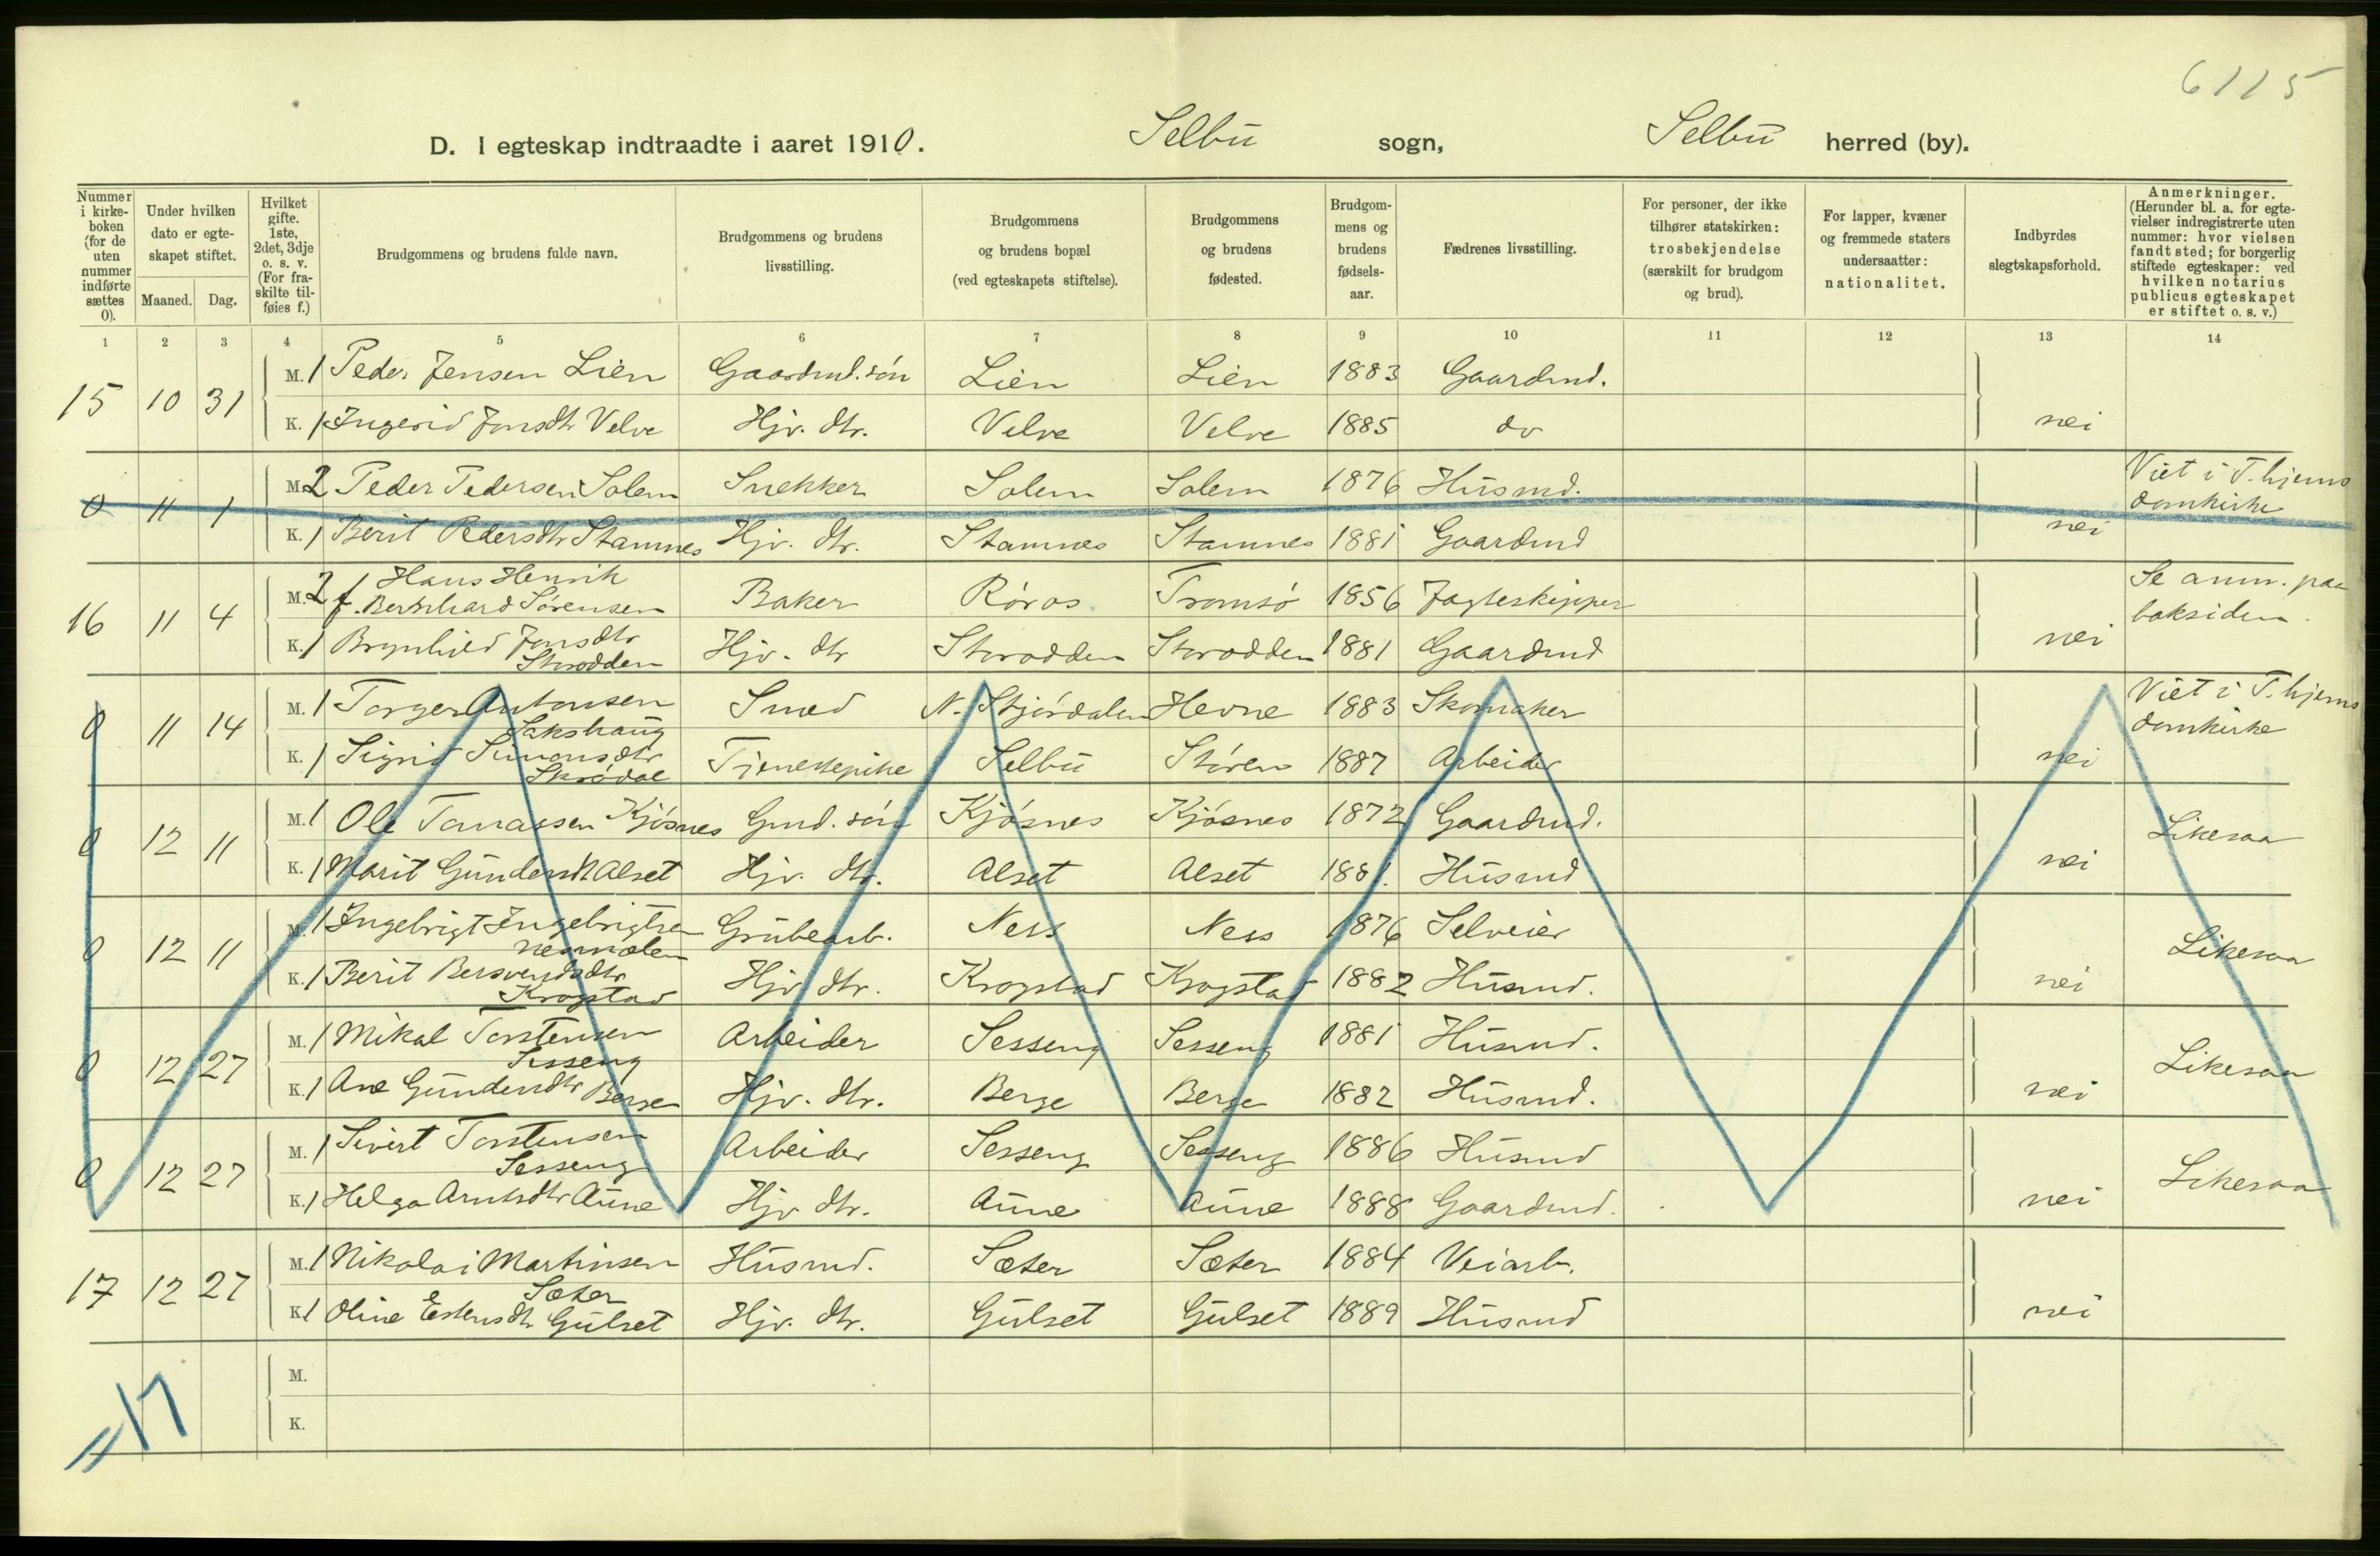 6115
D. I egteskap indtraadte i aaret 1910. Selbu sogn, Selbu herred (by).
Nummer i kirkeboken (for de uten nummer indførte sættes 0).
Under hvilken dato er egteskapet stiftet.
Maaned. Dag.
Hvilket gifte. 1ste, 2det, 3dje o. s. v. (For fraskilte tilføies f.)
Brudgommens og brudens fulde navn.
Brudgommens og brudens livsstilling.
Brudgommens og brudens bopæl (ved egteskapets stiftelse).
Brudgommens og brudens fødested.
Brudgommens og brudens fødselsaar.
Fædrenes livsstilling.
For personer, der ikke tilhører statskirken: trosbekjendelse (særskilt for brudgom og brud).
For lapper, kvæner og fremmede staters undersaatter: nationalitet.
Indbyrdes slegtskapsforhold.
Anmerkninger. (Herunder bl. a. for egtevielser indregistrerte uten nummer: hvor vielsen fandt sted; for borgerlig stiftede egteskaper: ved hvilken notarius publicus egteskapet er stiftet o. s. v.)
1 2 3 4 5 6 7 8 9 10 11 12 13 14
15 10 31 M. 1 Peder Jensen Lien Gaardmd. søn Lien Lien 1883 Gaardmd.
K. 1 Ingerid Jonsdtr Velve Hjv. dtr. Velve Velve 1885 do nei
0 11 1 M. 2 Peder Pedersen Solem Snekker Solem Solem 1876 Husmd. Viet i T.hjems domkirke
K. 1 Berit Pedersdtr Stamnes Hjv. dtr. Stamnes Stamnes 1881 Gaardmd nei
16 11 4 M. 2 f. Hans Henrik Bernhard Sørensen Baker Røros Tromsø 1856 Jagteskipper Se anm. paa baksiden.
K. 1 Brynhild Jonsdtr Storodden Hjv. dtr Storodden Storodden 1881 Gaardmd nei
0 11 14 M. 1 Torger Antonsen Sakshaug Smed N. Stjørdalen Hevne 1883 Skomaker Viet i T.hjems domkirke
K. 1 Sigrid Simonsdtr Skrødal Tjenestepike Selbu Støren 1887 Arbeider nei
0 12 11 M. 1 Ole Tomassen Kjøsnes Gmd. søn Kjøsnes Kjøsnes 1872 Gaardmd. Likesaa
K. 1 Marit Gundersdt. Alset Hjv. dtr. Alset Alset 1881. Husmd nei
0 12 11 M. 1 Ingebrigt Ingebrigtsen Nesmoen Grubearb. Ness Ness 1876 Selveier Likesaa
K. 1 Berit Bersvendsdtr Krogstad Hjv dtr. Krogstad Krogstad 1882 Husmd. nei
0 12 27 M. 1 Mikal Torstensen Sesseng Arbeider Sesseng Sesseng 1881 Husmd. Likesaa
K. 1 Ane Gundersdtr Berge Hjv. dtr. Berge Berge 1882 Husmd. nei
0 12 27 M. 1 Sivert Torstensen Sesseng Arbeider Sesseng Sesseng 1886 Husmd Likesaa
K. 1 Helga Arntsdtr Aune Hjv dtr. Aune Aune 1888 Gaardmd. nei
17 12 27 M. 1 Nikolai Martinsen Sæter Husmd. Sæter Sæter 1884 Veiarb.
K. 1 Oline Estensdtr Gulset Hjv. dtr. Gulset Gulset 1889 Husmd nei
M.
K.
17